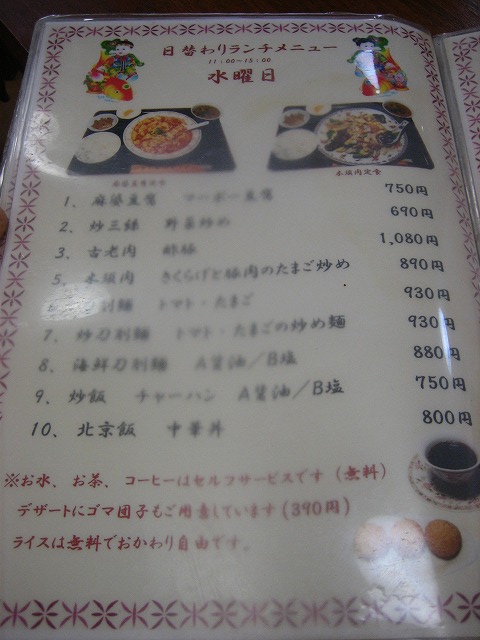 日替わりランチメニュー
11:00~15:00
水曜日
麻婆豆腐定食
木須肉定食
1、 麻婆豆腐 マーボー豆腐 750円
2、 炒三絲 野菜炒め 690円
3、 古老肉 酢豚 1,080円
5、 木須肉 きくらげと豚肉のたまご炒め 890円
削麺 トマト・たまご 930円
7、 炒刀削麺 トマト・たまごの炒め麺 930円
8、 海鮮刀削麺 A醤油/B塩 880円
9、 炒飯 チャーハン A醤油/B塩 750円
10、 北京飯 中華丼 800円
※お水、お茶、コーヒーはセルフサービスです(無料)
デザートにゴマ団子もご用意しています(390円)
ライスは無料でおかわり自由です。